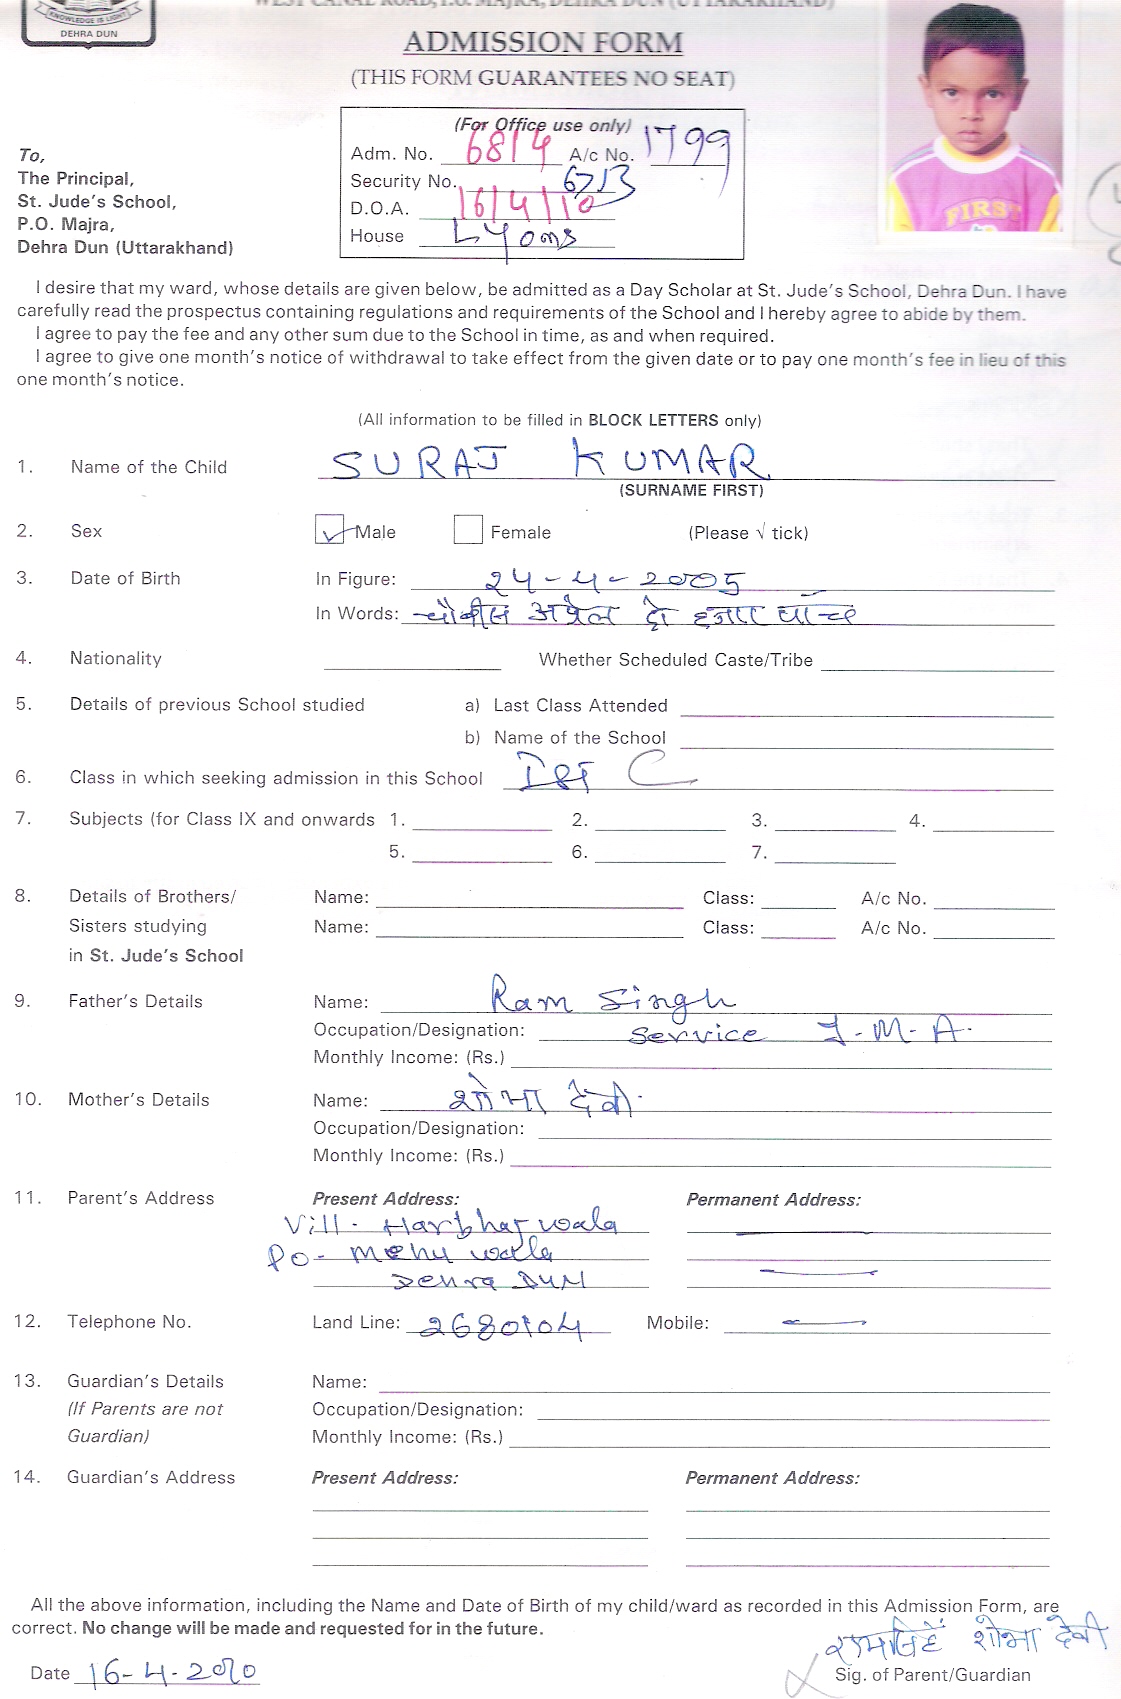 WEST CANAL ROAD, P.O. MAJRA, DEHRA DUN (UTTARAKHAND)
KNOWLEDGE IS LIGHT
DEHRA DUN
ADMISSION FORM
(THIS FORM GUARANTEES NO SEAT)
(For Office use only)
Adm. No. 6814 A/c No. 1799
Security No. 6713
D.O.A. 16/4/10
House Lyons
To,
The Principal,
St. Jude's School,
P.O. Majra,
Dehra Dun (Uttarakhand)
FIRST
I desire that my ward, whose details are given below, be admitted as a Day Scholar at St. Jude's School, Dehra Dun. I have
carefully read the prospectus containing regulations and requirements of the School and I hereby agree to abide by them.
I agree to pay the fee and any other sum due to the School in time, as and when required.
I agree to give one month's notice of withdrawal to take effect from the given date or to pay one month's fee in lieu of this
one month's notice.
(All information to be filled in BLOCK LETTERS only)
1. Name of the Child SURAJ KUMAR
(SURNAME FIRST)
2. Sex Male Female (Please √ tick)
3. Date of Birth In Figure: 24-4-2005
In Words: चौबीस अप्रैल दो हजार पाँच
4. Nationality Whether Scheduled Caste/Tribe
5. Details of previous School studied a) Last Class Attended
b) Name of the School
6. Class in which seeking admission in this School Ist C
7. Subjects (for Class IX and onwards 1. 2. 3. 4.
5. 6. 7.
8. Details of Brothers/ Name: Class: A/c No.
Sisters studying Name: Class: A/c No.
in St. Jude's School
9. Father's Details Name: Ram Singh
Occupation/Designation: Service I-M-A.
Monthly Income: (Rs.)
10. Mother's Details Name: शोभा देवी
Occupation/Designation:
Monthly Income: (Rs.)
11. Parent's Address Present Address: Permanent Address:
Vill- Harbhajwala
PO- Mehuwala
Dehra DUN
12. Telephone No. Land Line: 2680104 Mobile: —
13. Guardian's Details Name:
(If Parents are not Occupation/Designation:
Guardian) Monthly Income: (Rs.)
14. Guardian's Address Present Address: Permanent Address:
All the above information, including the Name and Date of Birth of my child/ward as recorded in this Admission Form, are
correct. No change will be made and requested for in the future.
रामसिंह शोभा देवी
Date 16-4-2010 Sig. of Parent/Guardian